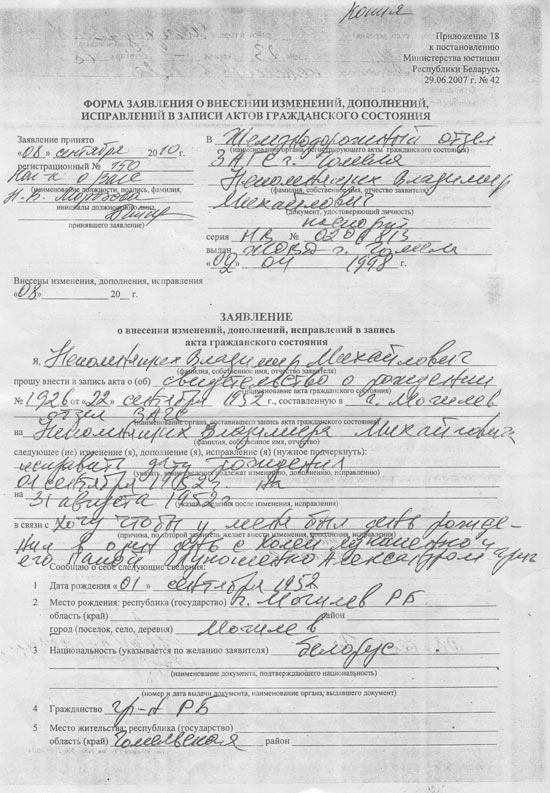 Копия
Приложение 18
к постановлению
Министерства юстиции
Республики Беларусь
29.06.2007 г. № 42
ФОРМА ЗАЯВЛЕНИЯ О ВНЕСЕНИИ ИЗМЕНЕНИЙ, ДОПОЛНЕНИЙ,
ИСПРАВЛЕНИЙ В ЗАПИСИ АКТОВ ГРАЖДАНСКОГО СОСТОЯНИЯ
Заявление принято
«08» сентября 2010 г.
регистрационный № 150
(наименование должности, подпись, фамилия,
инициалы должностного лица,
принявшего заявление)
В Железнодорожный отдел
(наименование органа, регистрирующего акты гражданского состояния)
ЗАГС г. Гомеля
Непомнящих Владимир
(фамилия, собственное имя, отчество заявителя)
Михайлович
(документ, удостоверяющий личность)
паспорт
серия НВ №
выдан г. Гомеля
«02» 04 1998 г.
Внесены изменения, дополнения, исправления
«08» 20 г.
ЗАЯВЛЕНИЕ
о внесении изменений, дополнений, исправлений в запись
акта гражданского состояния
Я, Непомнящих Владимир Михайлович
(фамилия, собственное имя, отчество заявителя)
прошу внести в запись акта о (об) свидетельство о рождении
№ 1926 от «22» сентября 1952 г., составленную в г. Могилев
отдел ЗАГС
(наименование органа, составившего запись акта гражданского состояния)
на Непомнящих Владимира Михайловича
(фамилия, собственное имя, отчество)
следующее (ие) изменение (я), дополнение (я), исправление (я) (нужное подчеркнуть):
исправить дату рождения
(указать, какие сведения подлежат изменению, дополнению, исправлению)
01 сентября 1952г. на
на 31 августа 1952г.
(указать сведения после изменения, исправления)
в связи с хочу чтобы у меня был день рожде-
(причина, по которой заявитель желает внести изменения, дополнения, исправления)
ния в один день с Колей Лукашенко и
его Папой Лукошенко Александром Григ
Сообщаю о себе следующие сведения:
1 Дата рождения «01» сентября 1952
2 Место рождения: республика (государство) г. Могилев РБ
область (край) район
город (поселок, село, деревня) Могилев
3 Национальность (указывается по желанию заявителя) белорус
(наименование документа, подтверждающего национальность)
(номер и дата выдачи документа, наименование органа, выдавшего документ)
4 Гражданство гр-н РБ
5 Место жительства: республика (государство)
область (край) Гомельская район